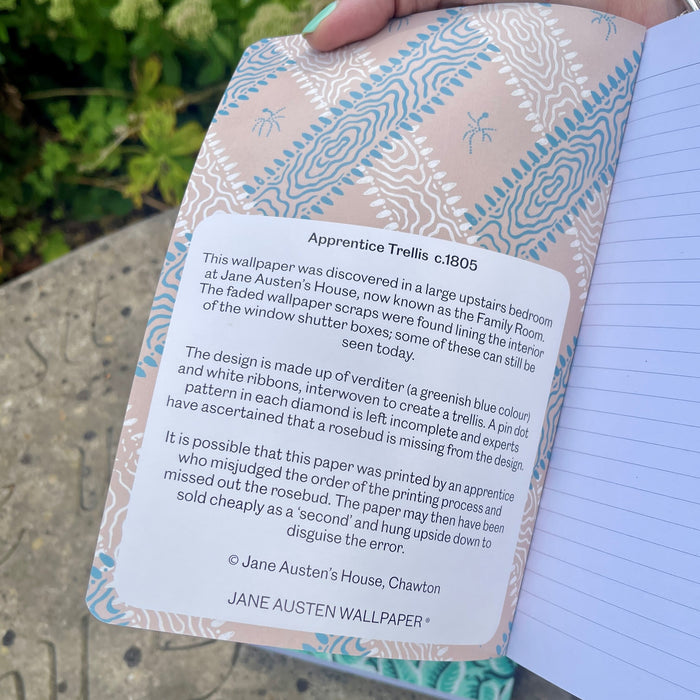 Apprentice Trellis c.1805
This wallpaper was discovered in a large upstairs bedroom
at Jane Austen's House, now known as the Family Room.
The faded wallpaper scraps were found lining the interior
of the window shutter boxes; some of these can still be
seen today.
The design is made up of verditer (a greenish blue colour)
and white ribbons, interwoven to create a trellis. A pin dot
pattern in each diamond is left incomplete and experts
have ascertained that a rosebud is missing from the design.
It is possible that this paper was printed by an apprentice
who misjudged the order of the printing process and
missed out the rosebud. The paper may then have been
sold cheaply as a 'second' and hung upside down to
disguise the error.
© Jane Austen's House, Chawton
JANE AUSTEN WALLPAPER®